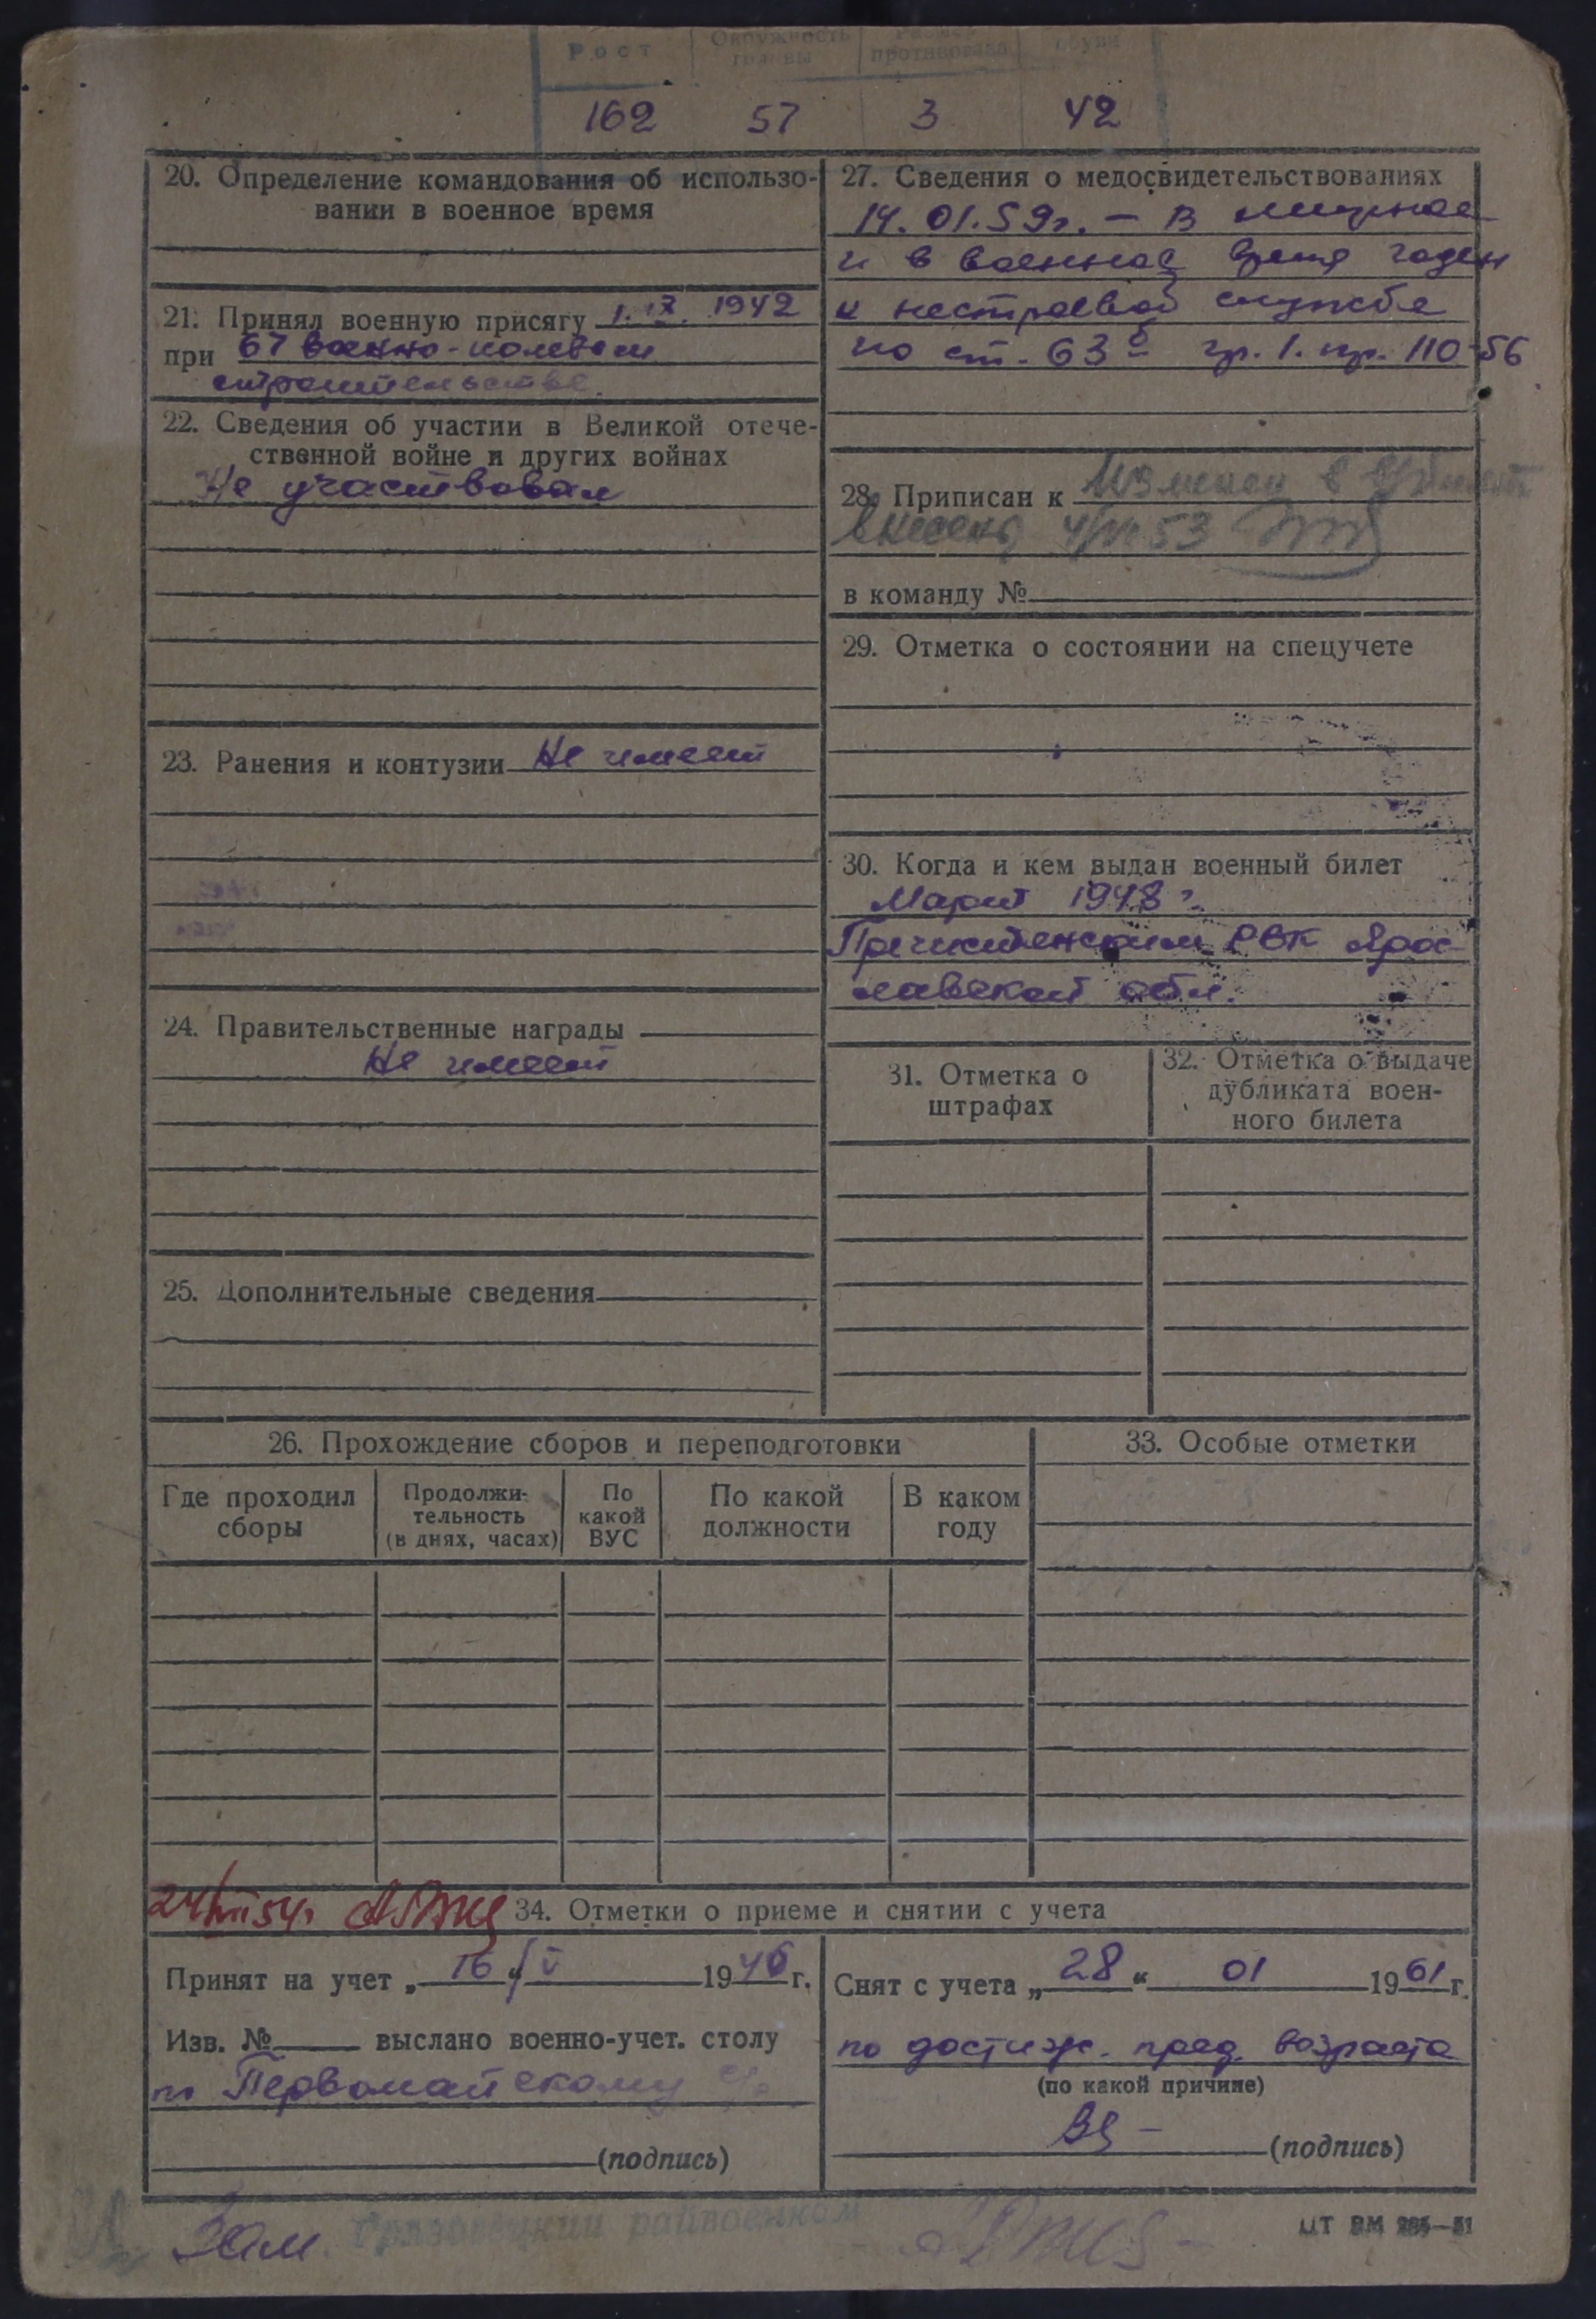 Рост Окружность головы Размер противогаза обуви
162 57 3 42
20. Определение командования об использо-
вании в военное время
21. Принял военную присягу 1.IX. 1942
при 67 военно-полевом
строительстве.
22. Сведения об участии в Великой отече-
ственной войне и других войнах
Не участвовал
23. Ранения и контузии Не имеет
24. Правительственные награды
Не имеет
25. Дополнительные сведения
27. Сведения о медосвидетельствованиях
14.01.59г. — В мирное
и в военное время годен
к нестроевой службе
по ст. 63б гр. 1. пр. 110-56
28. Приписан к
внесено 53
в команду №
29. Отметка о состоянии на спецучете
30. Когда и кем выдан военный билет
Март 1948 г.
Пречистенским РВК Яро-
славской обл.
31. Отметка о
штрафах
32. Отметка о выдаче
дубликата воен-
ного билета
26. Прохождение сборов и переподготовки
Где проходил
сборы
Продолжи-
тельность
(в днях, часах)
По
какой
ВУС
По какой
должности
В каком
году
33. Особые отметки
24/VII 54г
34. Отметки о приеме и снятии с учета
Принят на учет „16“ V 1946 г.
Изв. № выслано военно-учет. столу
по Первомайскому с/с
(подпись)
Снят с учета „28“ 01 1961 г.
по достиж. пред. возраста
(по какой причине)
(подпись)
Зам. Грязовецкий райвоенком
ЦТ ВМ 285—51